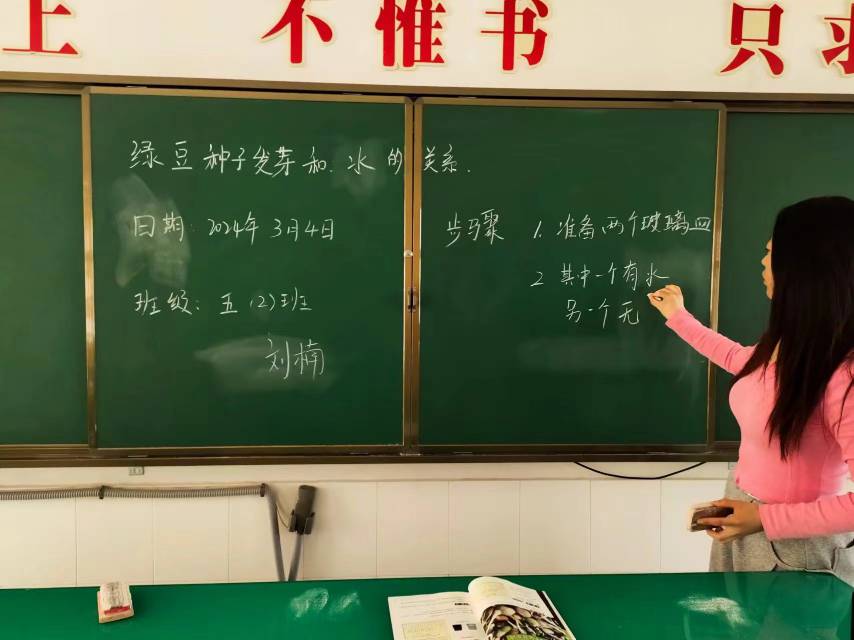 上 不惟书 只求
绿豆种子发芽和水的关系.
日期: 2024年 3月4日
班级: 五(2)班
刘楠
步骤 1. 准备两个玻璃皿
2 其中一个有水
另一个无